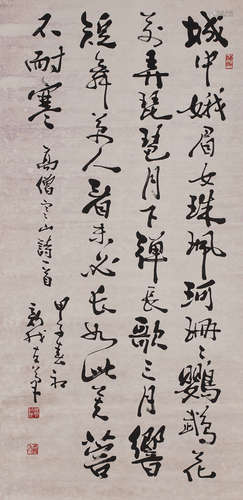 城中娥眉女珠珮珂珊々鸚鵡花
前弄琵琶月下彈長歌三月響
短舞萬人看未必長如此芙蓉
不耐寒 高僧寒山詩一首
甲子春初
新我左筆